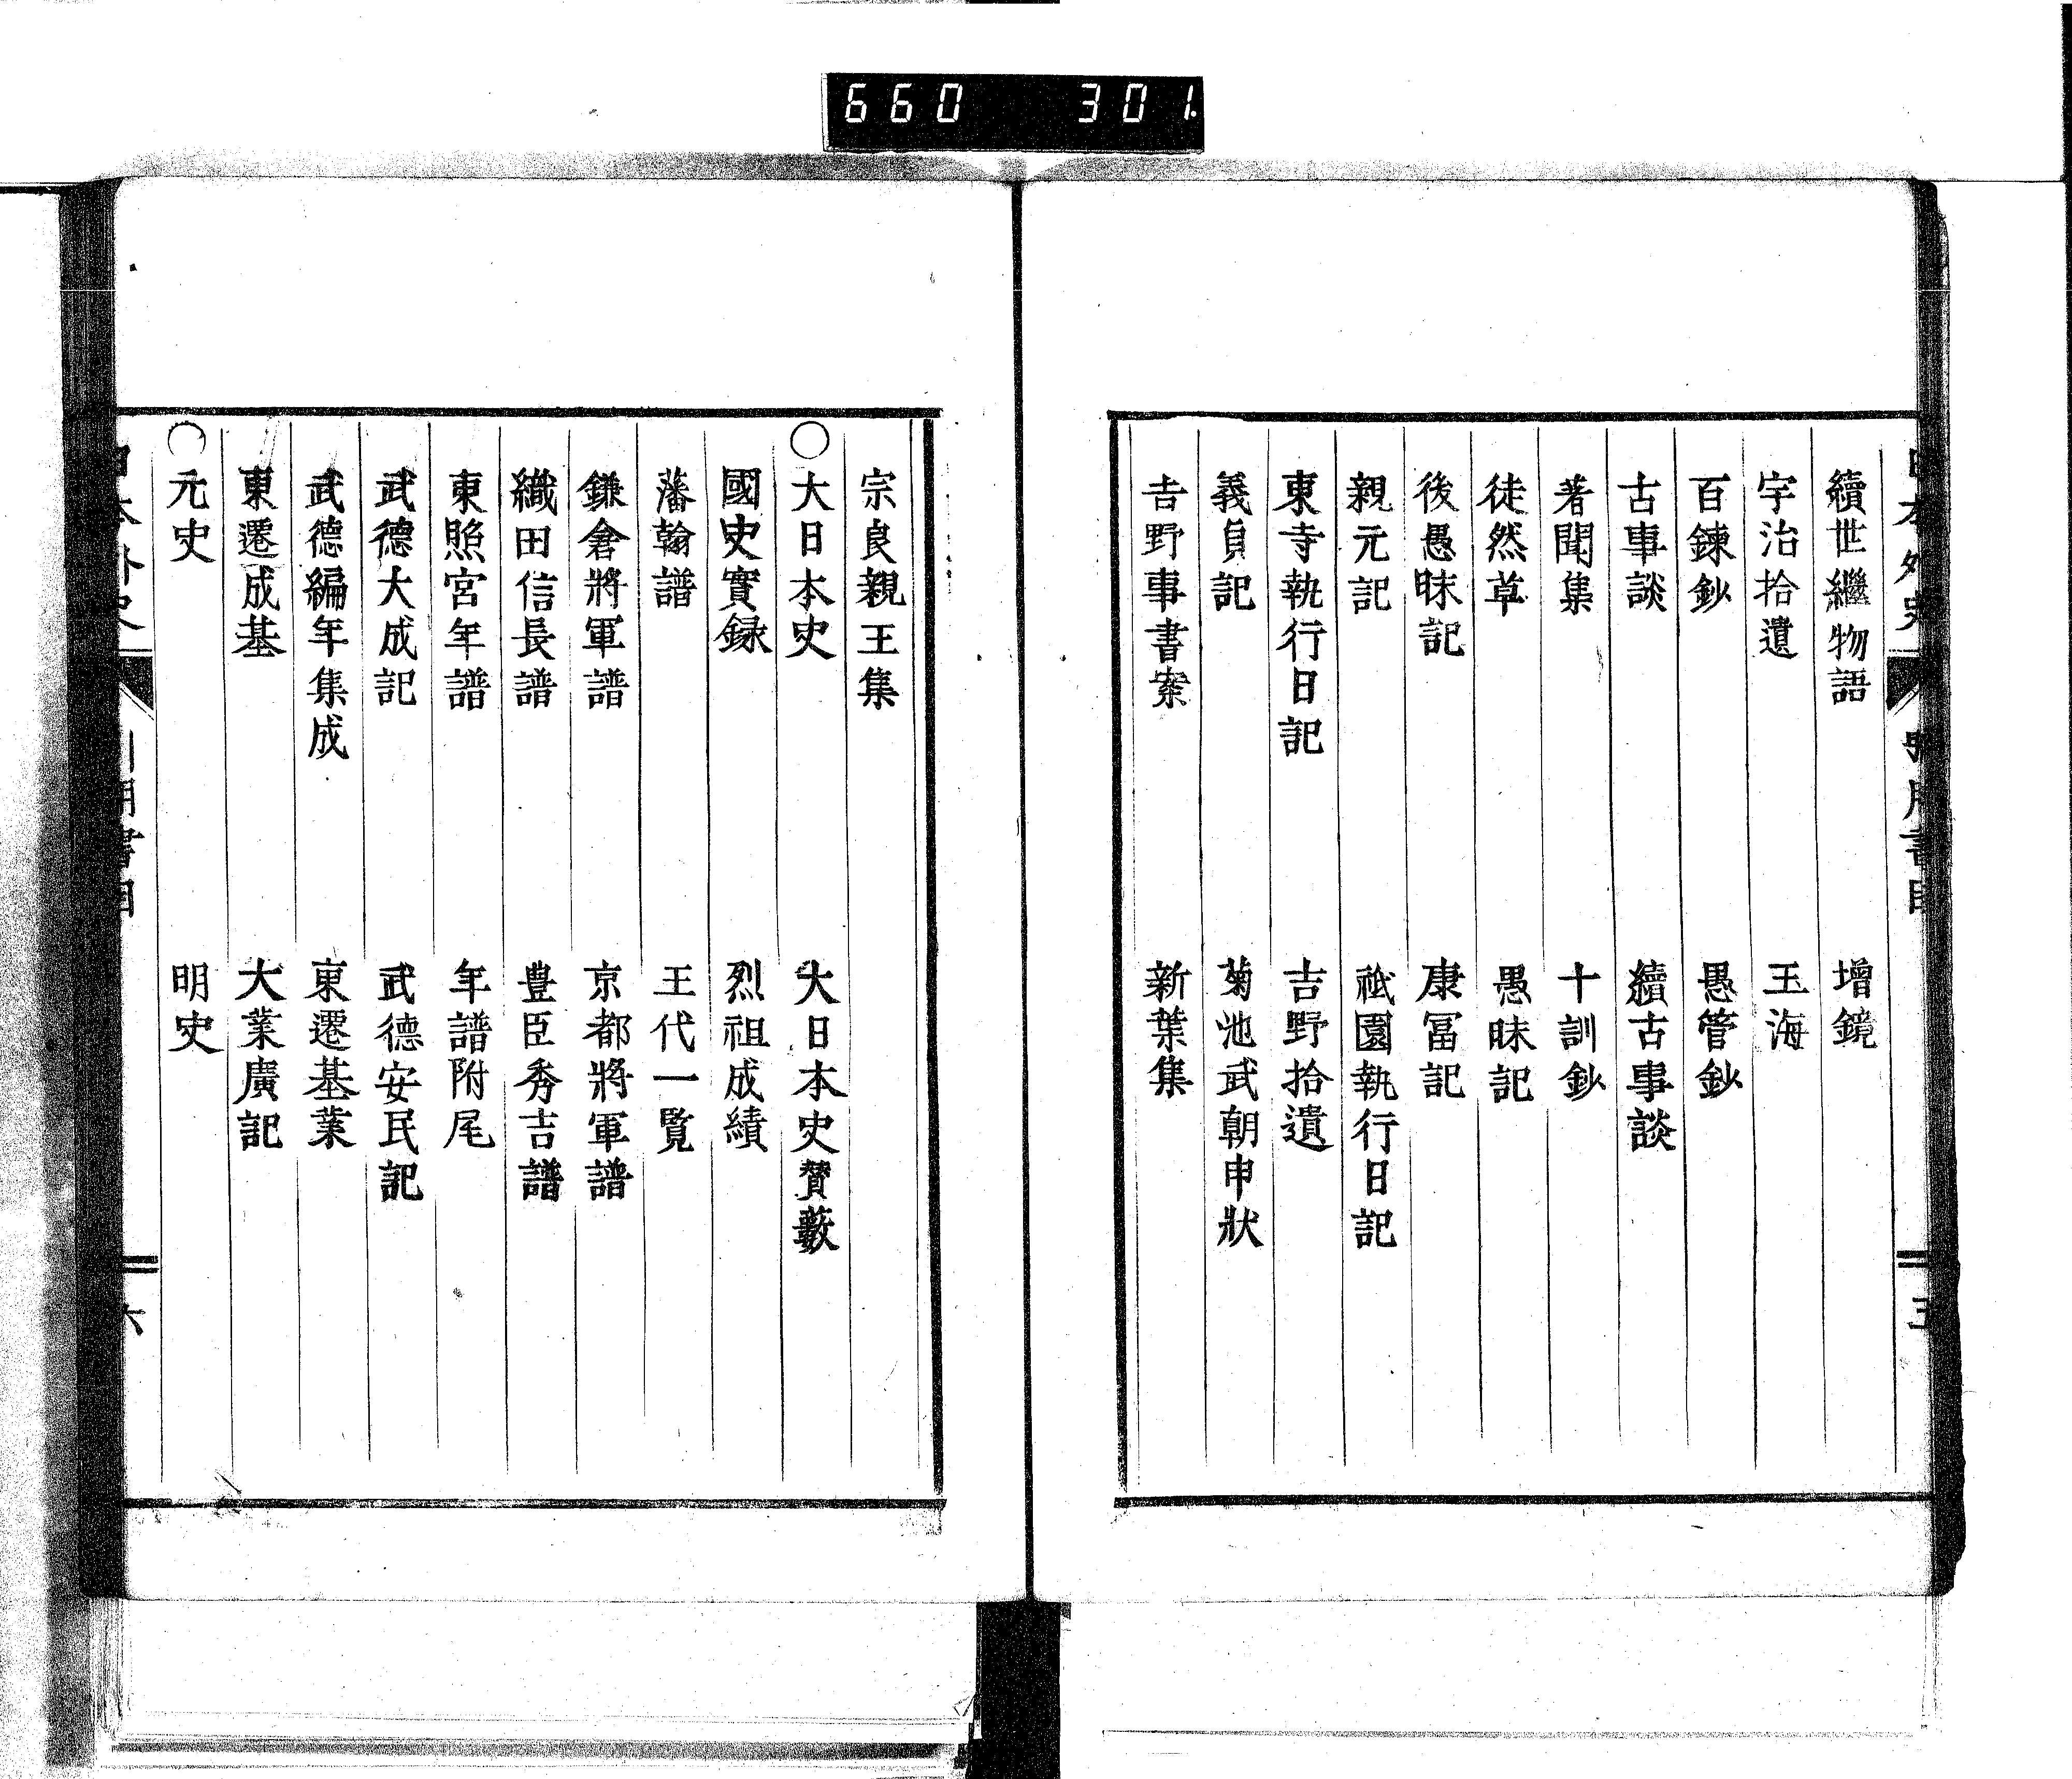 660 301.
續世繼物語 增鏡
宇治拾遺 玉海
百鍊鈔 愚管鈔
古事談 續古事談
著聞集 十訓鈔
徒然草 愚昧記
後愚昧記 康冨記
親元記 祇園執行日記
東寺執行日記 吉野拾遺
義貞記 菊池武朝申狀
吉野事書案 新葉集
宗良親王集
〇大日本史 大日本史贊藪
國史實録 烈祖成績
藩翰譜 王代一覽
鎌倉將軍譜 京都將軍譜
織田信長譜 豊臣秀吉譜
東照宮年譜 年譜附尾
武德大成記 武德安民記
武德編年集成 東遷基業
東遷成基 大業廣記
〇元史 明史
六